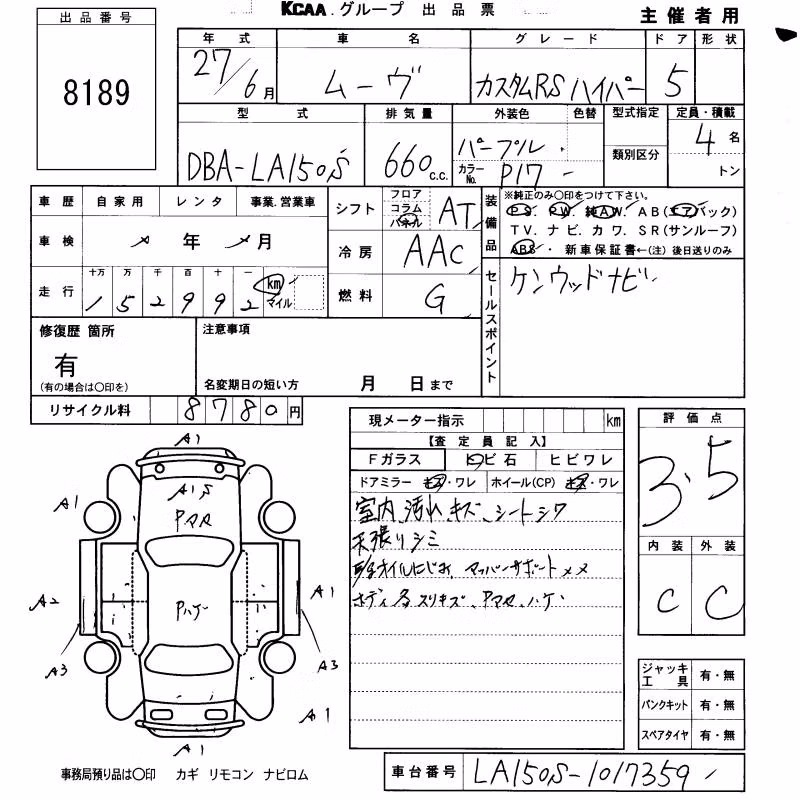 KCAA.グループ 出品票
主催者用
出品番号
8189
年式 車名 グレード ドア 形状
27/6月 ムーヴ カスタムRS ハイパー 5
型式 排気量 外装色 色替 型式指定 定員・積載
DBA-LA150S 660c.c. パープル 類別区分 4名
カラーNo. P17 トン
車歴 自家用 レンタ 事業.営業車
シフト フロア コラム パネル AT
装備品
※純正のみ○印をつけて下さい。
PS. PW. 純AW. AB(エアバック)
TV. ナビ. カワ. SR(サンルーフ)
ABS・ 新車保証書←(注) 後日送りのみ
車検 年 月
冷房 AAC
走行 十万 万 千 百 十 一
152992 km マイル
燃料 G
セールスポイント
ケンウッドナビ
修復歴 箇所
有
(有の場合は○印を)
注意事項
名変期日の短い方 月 日まで
リサイクル料 8780円
現メーター指示 km
【査定員記入】
Fガラス トビ石 ヒビワレ
ドアミラー キズ・ワレ ホイール(CP) キズ・ワレ
室内 汚れ キズ、シートシワ
天張りシミ
オイルにじみ、
ボディ 各 スリキズ、
評価点
3.5
内装 外装
C C
A1
A1S
A1
A1
A2
A1
A3
A3
A1
A1
ジャッキ工具 有・無
パンクキット 有・無
スペアタイヤ 有・無
事務局預り品は○印 カギ リモコン ナビロム
車台番号 LA150S-1017359